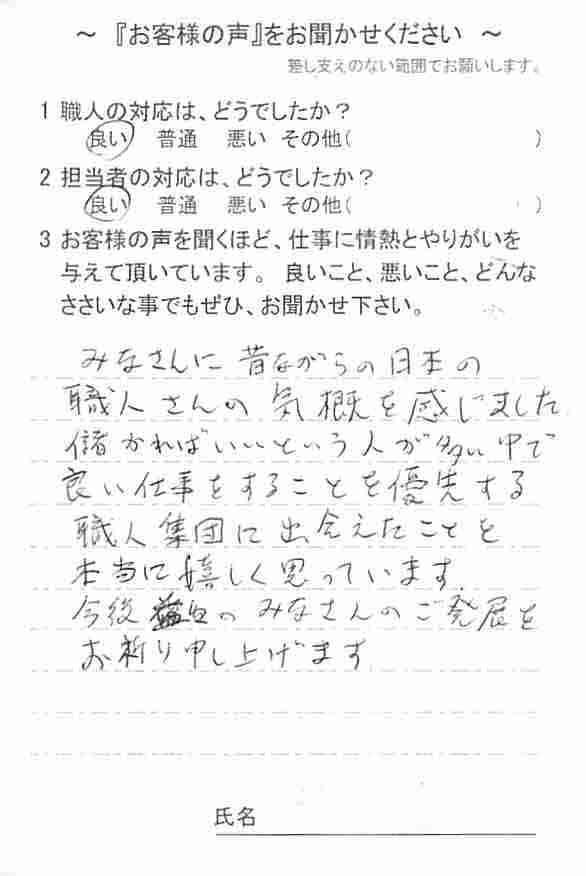 ～ 『お客様の声』をお聞かせください ～
差し支えのない範囲でお願いします。
1 職人の対応は、どうでしたか？
良い 普通 悪い その他( )
2 担当者の対応は、どうでしたか？
良い 普通 悪い その他( )
3 お客様の声を聞くほど、仕事に情熱とやりがいを
与えて頂いています。 良いこと、悪いこと、どんな
ささいな事でもぜひ、お聞かせ下さい。
みなさんに昔ながらの日本の
職人さんの気概を感じました
儲かればいいという人が多い中で
良い仕事をすることを優先する
職人集団に出会えたことを
本当に嬉しく思っています
今後 の みなさんのご発展を
お祈り申し上げます
氏名